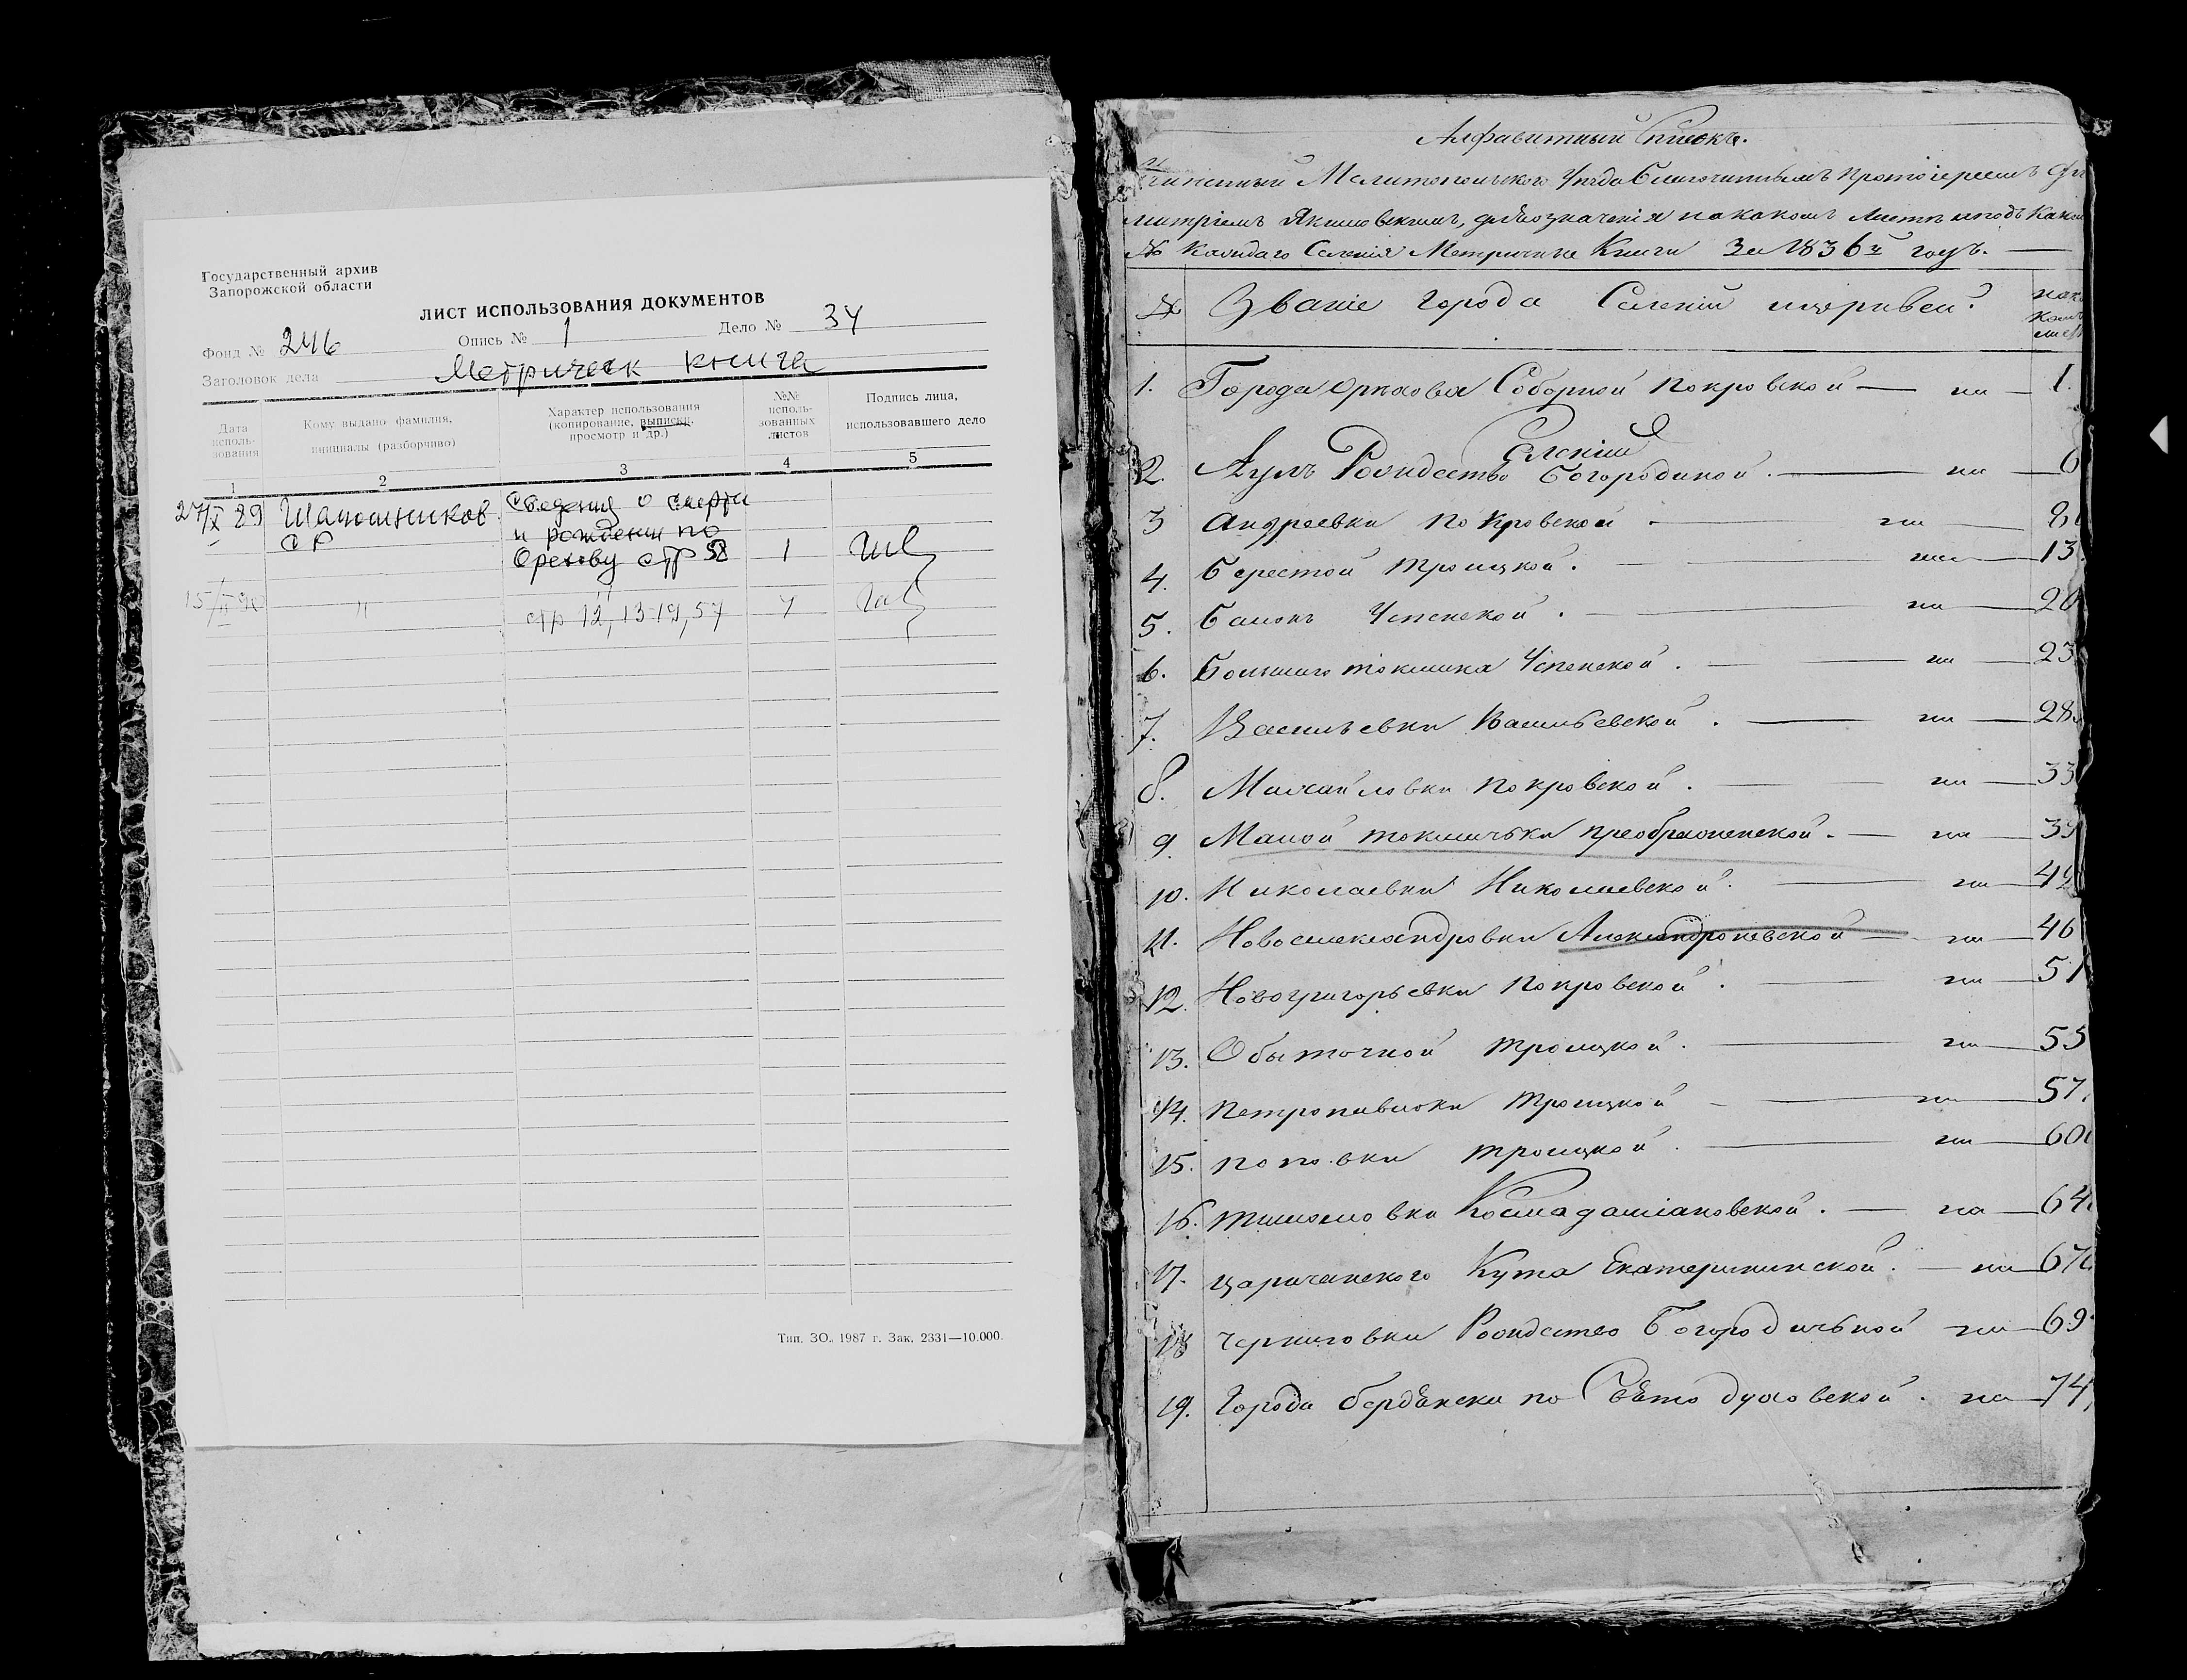 Государственный архив
Запорожской области
ЛИСТ ИСПОЛЬЗОВАНИЯ ДОКУМЕНТОВ
Фонд № 246 Опись № 1 Дело № 34
Заголовок дела Метрическ книга
Дата исполь-зования
Кому выдано фамилия, инициалы (разборчиво)
Характер использования (копирование, выписки, просмотр и др.)
№№ исполь-зованных листов
Подпись лица, использовавшего дело
1 2 3 4 5
27/X 89 Шапошников Сведения о смерти
СР и рождении по
Орехову стр 58 1
15/II 90 " стр 12, 13-19, 57 7
Тип. ЗО. 1987 г. Зак. 2331—10.000.
Алфавитный Списокъ.
Мелитопольского Уезда Благочиннымъ Протоіереемъ Ди
митріемъ Якимовскимъ, для означенія на какомъ листе и подъ каким
№ каждаго Селенія Метричные Книги За 1836й годъ.
№ Званіе города Селеній и церквей. на ка ком лист
1. Города Орехова Соборной Покровской — на — 1.
Селеній
2. Аулъ Рождество Богородичной. — на — 6
3 Андреевки Покровской — на — 8
4. Берестой Троицкой. — на — 13.
5. Балокъ Успенской. — на — 20
6. Большаго токмака Успенской. — на — 23
7. Васильевки Васильевской. — на — 28.
8. Михайловки Покровской. — на — 33
9. Малой токмачьки преображенской. — на — 39
10. Николаевки Николаевской. — на — 42
11. Новоалександровки Александроневской — на — 46
12. Новогригорьевки Покровской. — на — 51
13. Обыточной троицкой. — на — 55
14. Петропавловки Троицкой — на — 57.
15. поповки троицкой. — на — 60
16. тимошовки Космадаміановской. — на — 64
17. царичанского Кута Екатерининской. — на 67
18 Черниговки Рождество Богородичьной на — 69
19. Города бердянска по Свято духовской. на — 74,